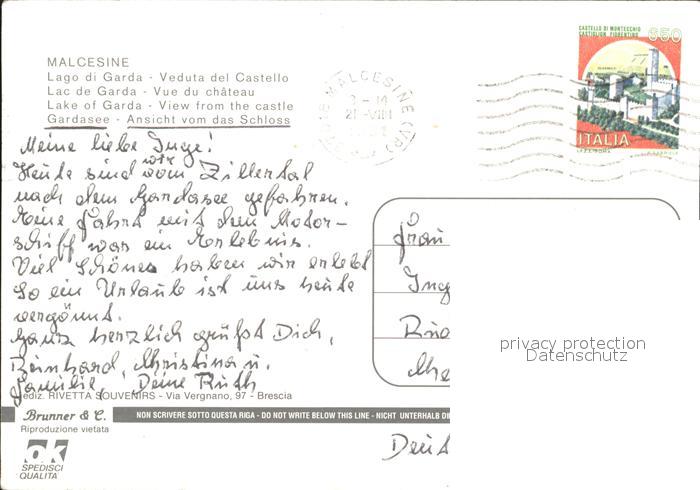 MALCESINE
Lago di Garda - Veduta del Castello
Lac de Garda - Vue du château
Lake of Garda - View from the castle
Gardasee - Ansicht vom das Schloss
CASTELLO DI MONTECCHIO
CASTIGLION FIORENTINO
650
ITALIA
MALCESINE (VR)
Meine liebe Inge!
Heute sind wir vom Zillertal
nach dem Gardasee gefahren.
Eine Fahrt mit dem Motor-
schiff war ein Erlebnis.
Viel Schönes haben wir erlebt
So ein Urlaub ist uns heute
vergönnt.
Ganz herzlich grüßt Dich,
Reinhard, Christina u.
Familie, Deine Ruth
Frau
Ing
privacy protection
Datenschutz
ediz. RIVETTA SOUVENIRS - Via Vergnano, 97 - Brescia
Brunner & C.
NON SCRIVERE SOTTO QUESTA RIGA - DO NOT WRITE BELOW THIS LINE - NICHT UNTERHALB DI
Riproduzione vietata
ok
SPEDISCI
QUALITÀ